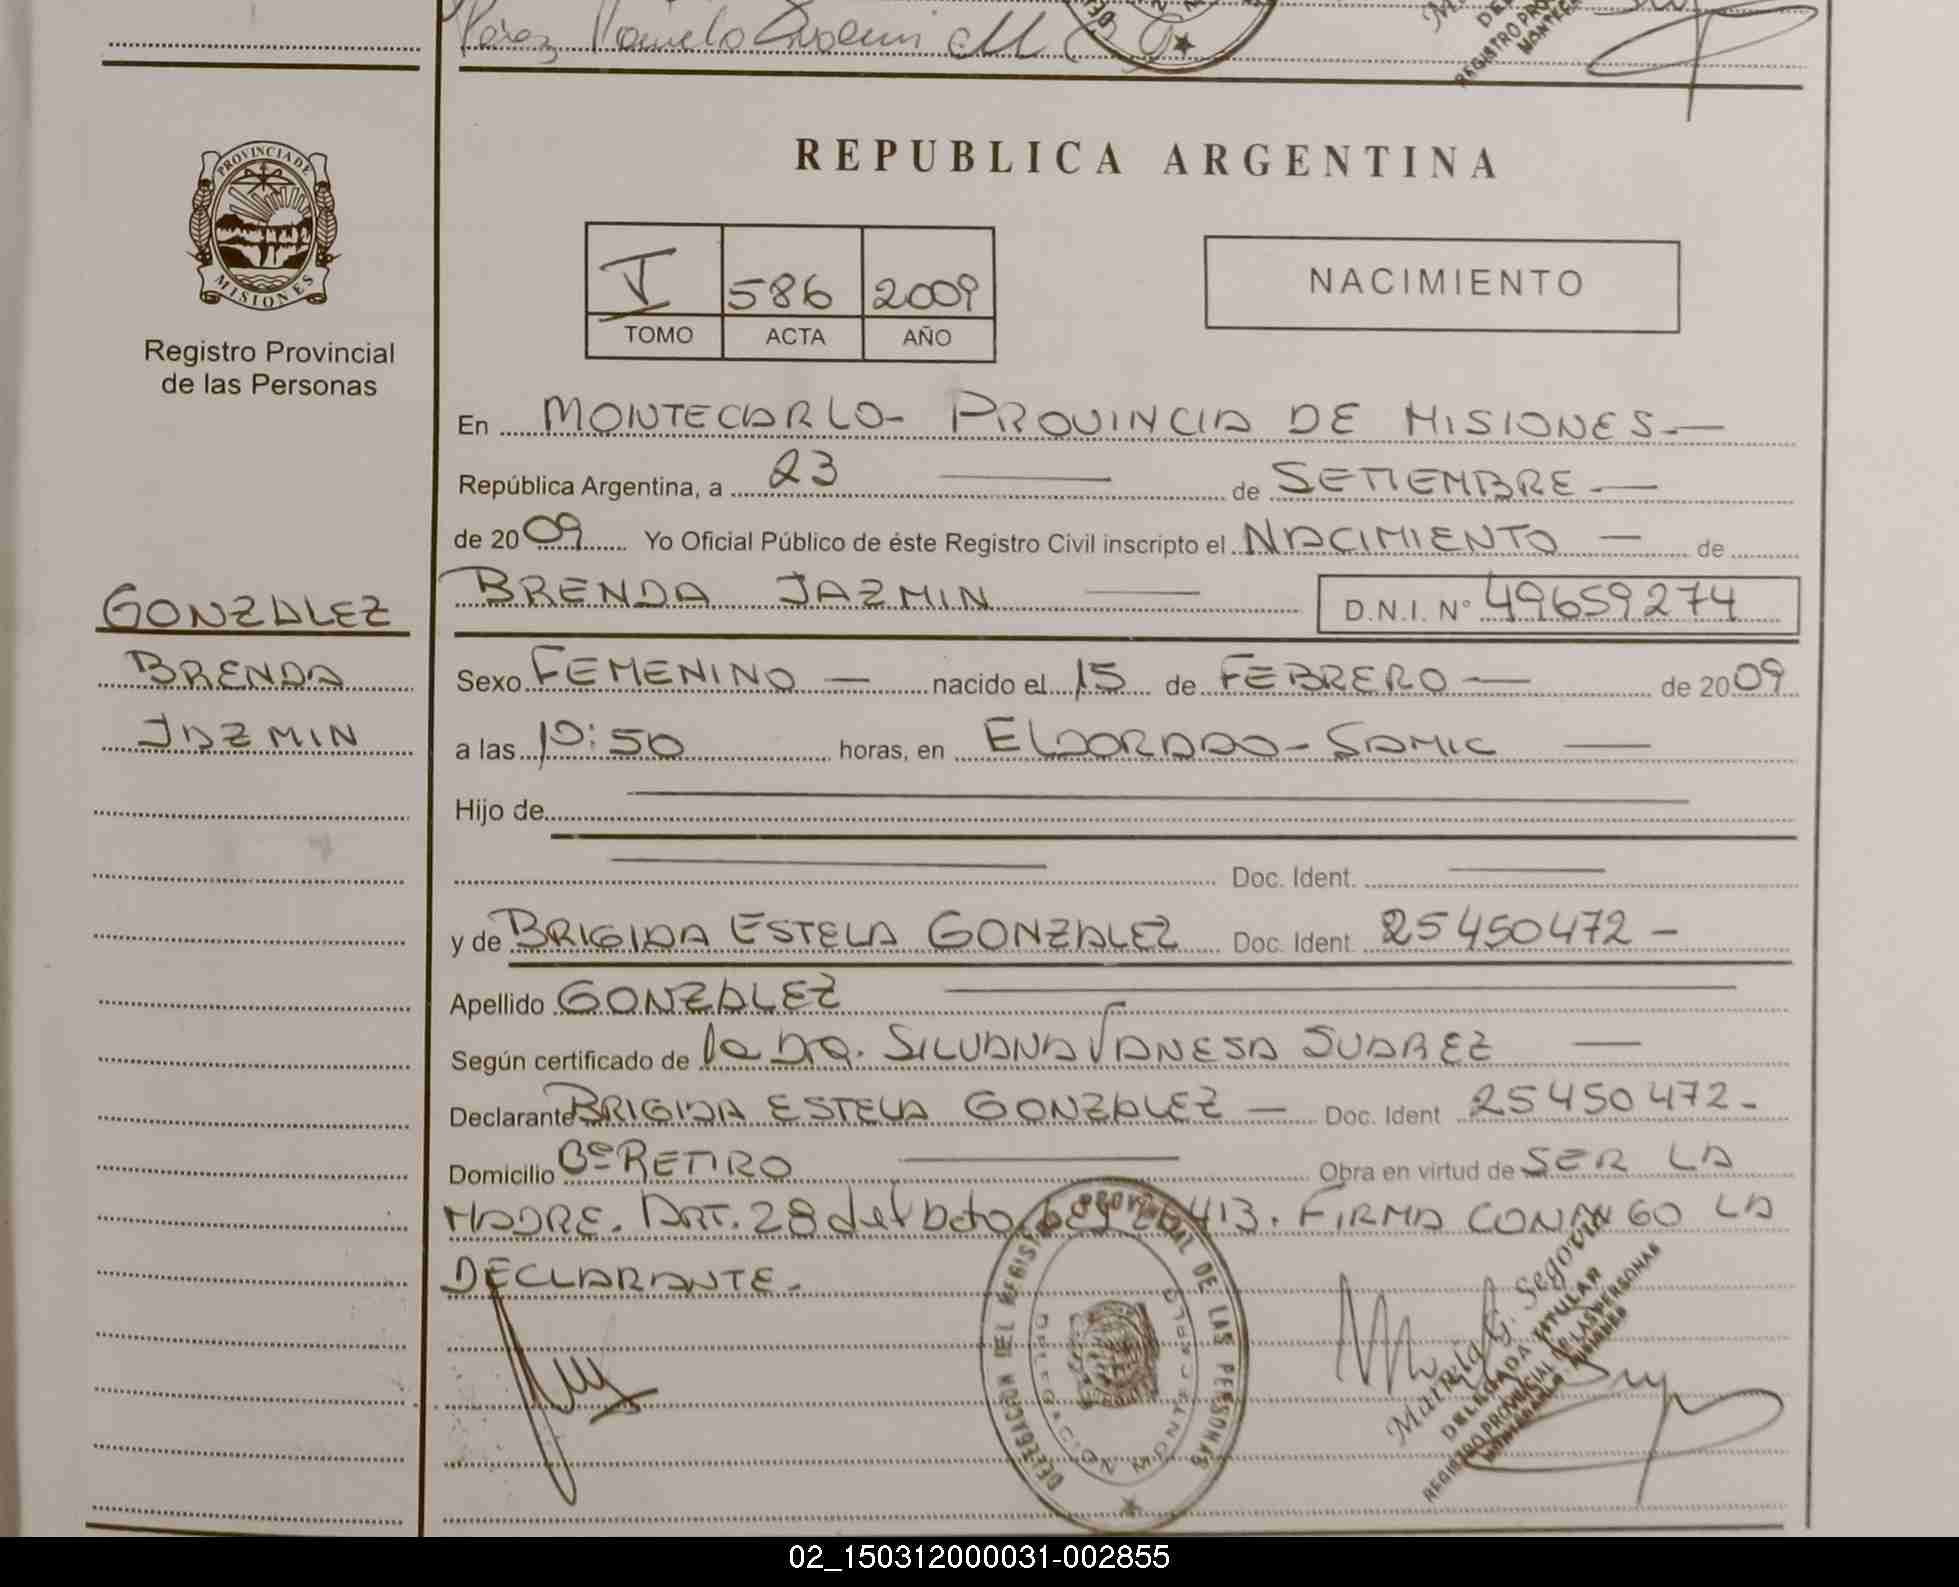 REPUBLICA ARGENTINA
PROVINCIA DE
MISIONES
Registro Provincial
de las Personas
I 586 2009
TOMO ACTA AÑO
NACIMIENTO
En MONTECARLO- PROVINCIA DE MISIONES.—
República Argentina, a 23 — de SETIEMBRE —
de 2009 Yo Oficial Público de éste Registro Civil inscripto el NACIMIENTO — de
GONZALEZ
BRENDA
JAZMIN
BRENDA JAZMIN — D.N.I. N° 49659274
Sexo FEMENINO — nacido el 15 de FEBRERO — de 2009
a las 10:50 horas, en ELDORADO-SAMIC —
Hijo de —
— Doc. Ident. —
y de BRIGIDA ESTELA GONZALEZ Doc. Ident. 25450472 -
Apellido GONZALEZ —
Según certificado de la Dra. SILVANA VANESA SUAREZ —
Declarante BRIGIDA ESTELA GONZALEZ — Doc. Ident 25450472-
Domicilio Bº RETIRO — Obra en virtud de SER LA
MADRE. ART. 28 del Dcto 26413. FIRMA CONMIGO LA
DECLARANTE.
DELEGACION DEL REGISTRO PROVINCIAL DE LAS PERSONAS
DELEGACION MONTECARLO
María G. Segovia
DELEGADA TITULAR
REGISTRO PROVINCIAL DE LAS PERSONAS
02_150312000031-002855